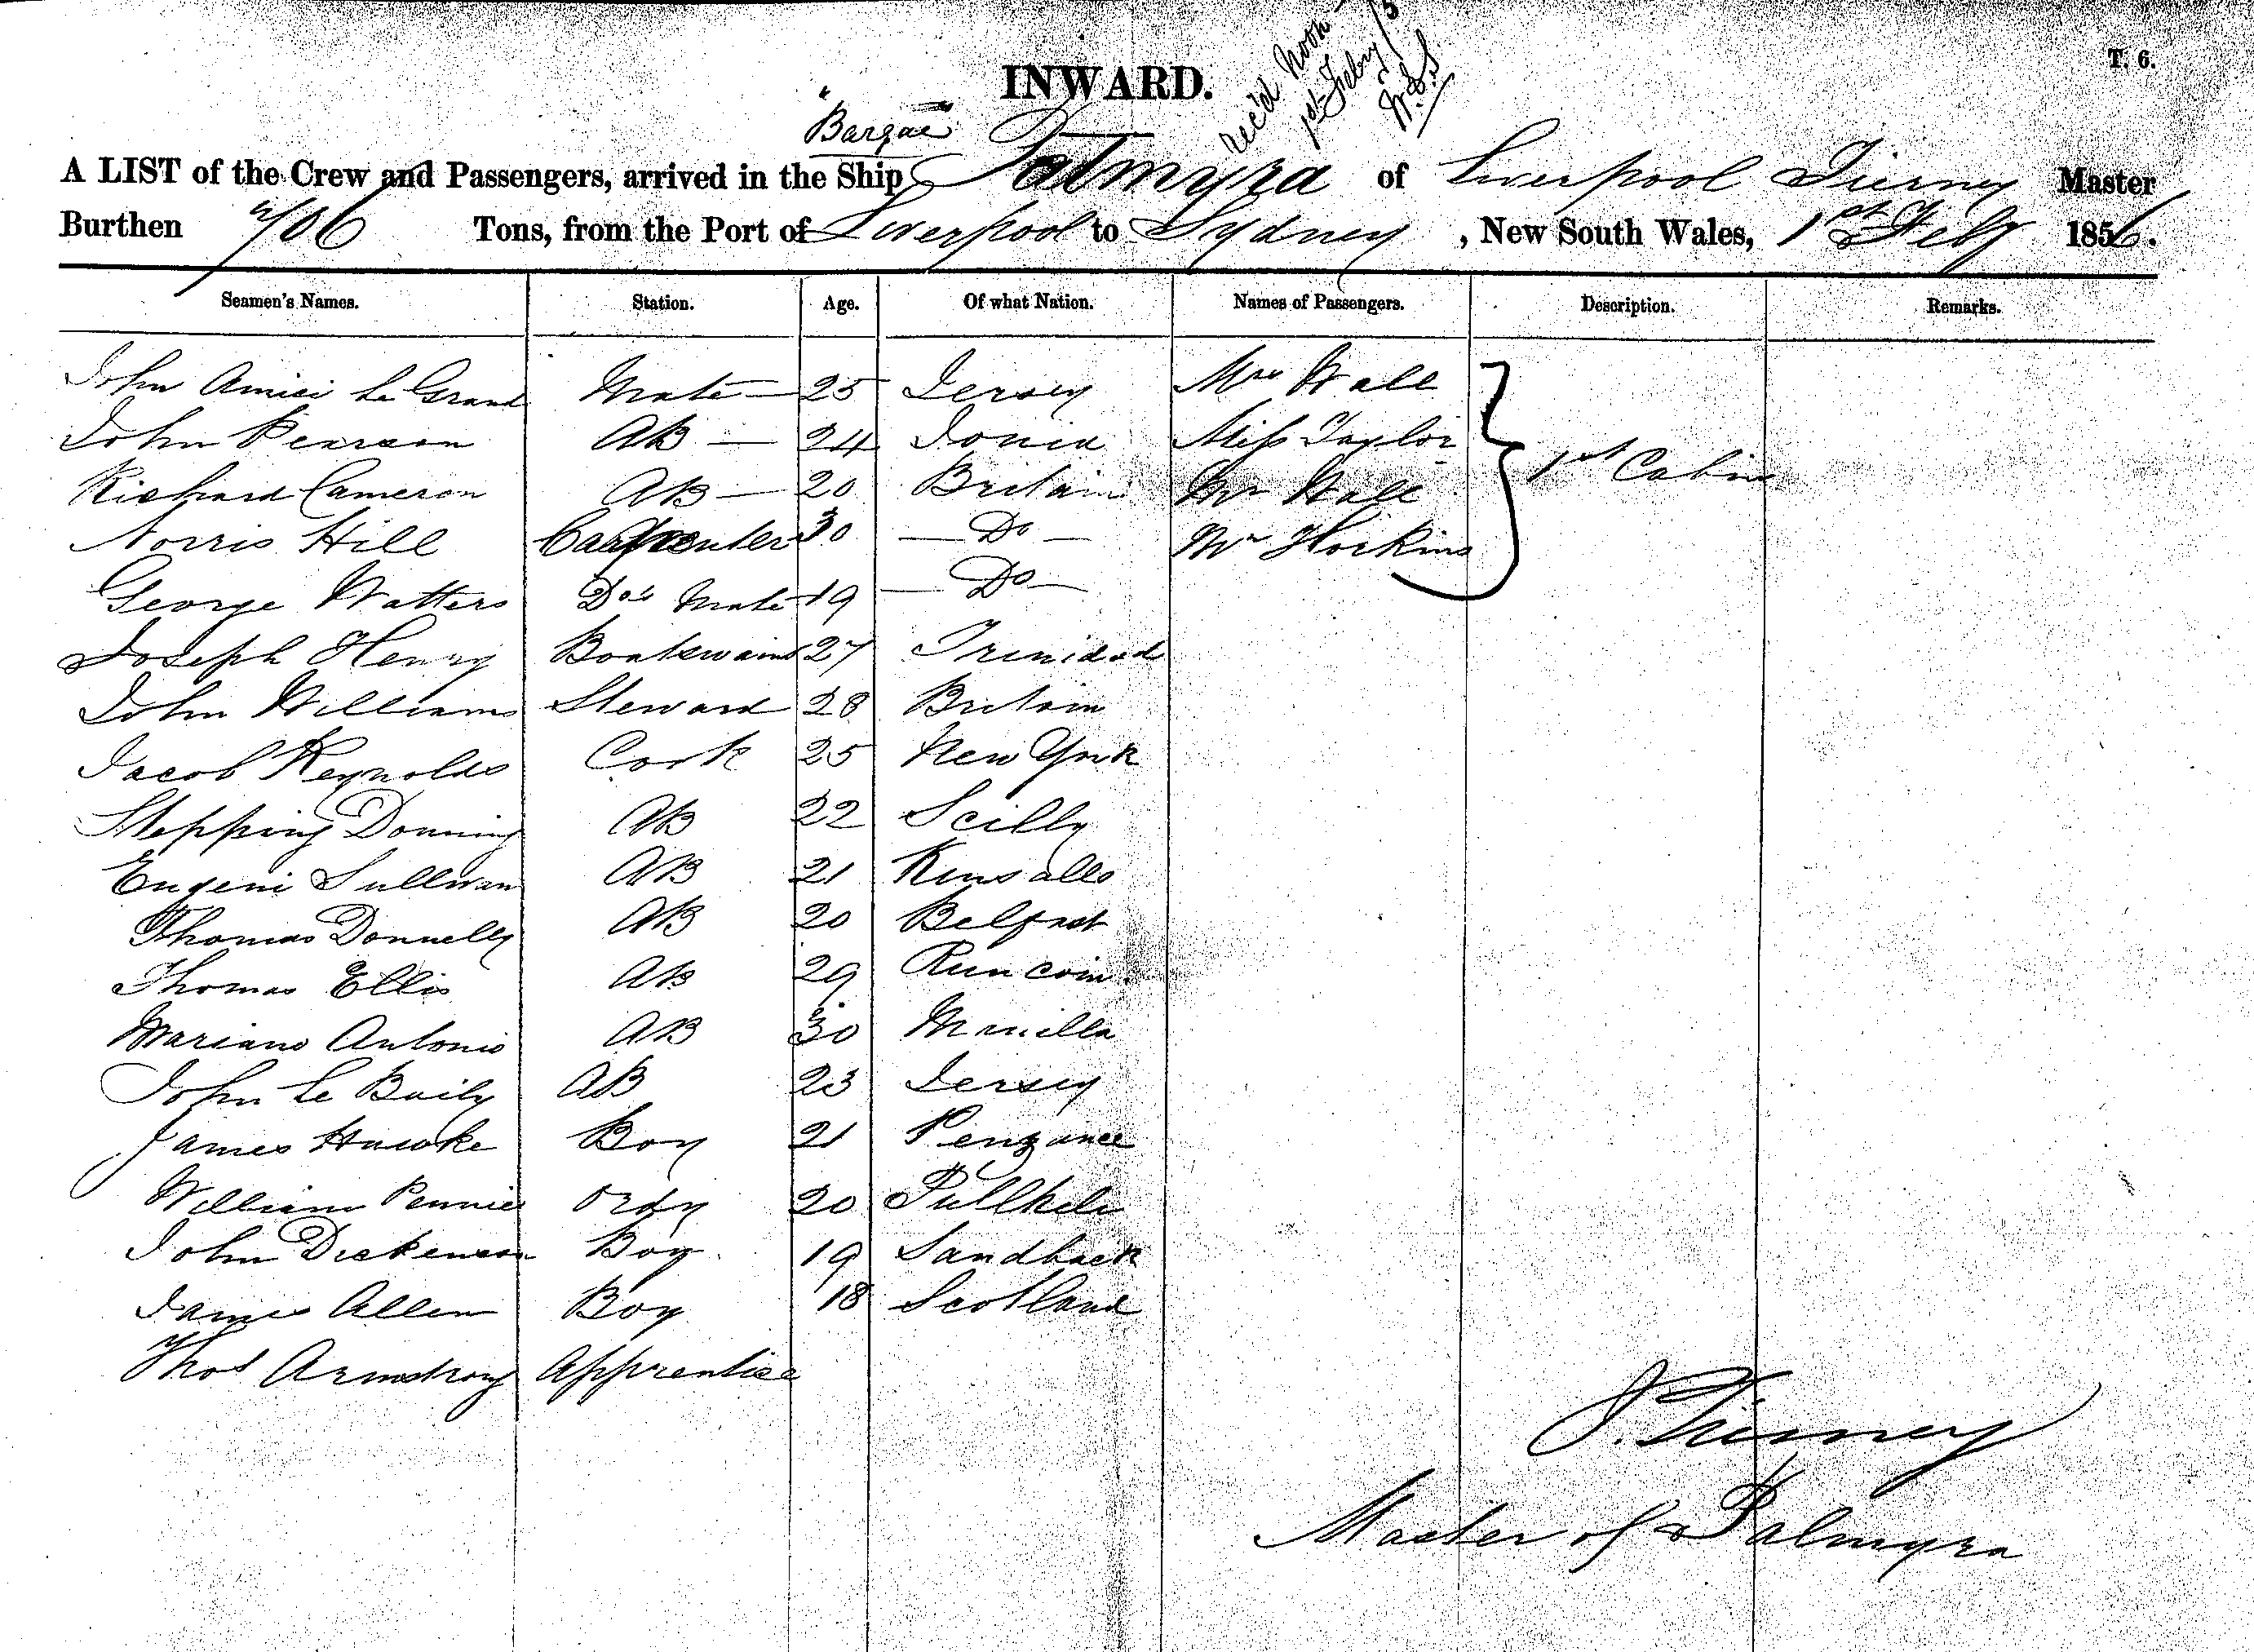 T. 6.
INWARD.
Rec'd Noon
1st Feby
Barque
A LIST of the Crew and Passengers, arrived in the Ship Palmyra of Liverpool Tierney Master
Burthen 406 Tons, from the Port of Liverpool to Sydney, New South Wales, 1st Feby 1856.
Seamen's Names. Station. Age. Of what Nation. Names of Passengers. Description. Remarks.
John Amici Le Grand Mate 25 Jersey Mrs Wall
John Pearson AB 24 Ionia Miss Taylor
1st Cabin
Richard Cameron AB 20 Britain Mr Wall
Norris Hill Carpenter 30 Do Mr Horkins
George Watters Do's Mate 19 Do
Joseph Henry Boatswain 27 Trinidad
John Williams Steward 28 Britain
Jacob Reynolds Cook 25 New York
Stepping Donning AB 22 Scilly
Eugeni Sullivan AB 21 Kinsalle
Thomas Donnelly AB 20 Belfast
Thomas Ellis AB 29 Runcoin
Mariano Antonio AB 30 Manilla
John Le Baily AB 23 Jersey
James Hawke Boy 21 Penzance
William Pennie Ordy 20 Pullheli
John Dickenson Boy 19 Sandback
James Allen Boy 18 Scotland
Thos Armstrong Apprentice
P. Tierney
Master of Palmyra